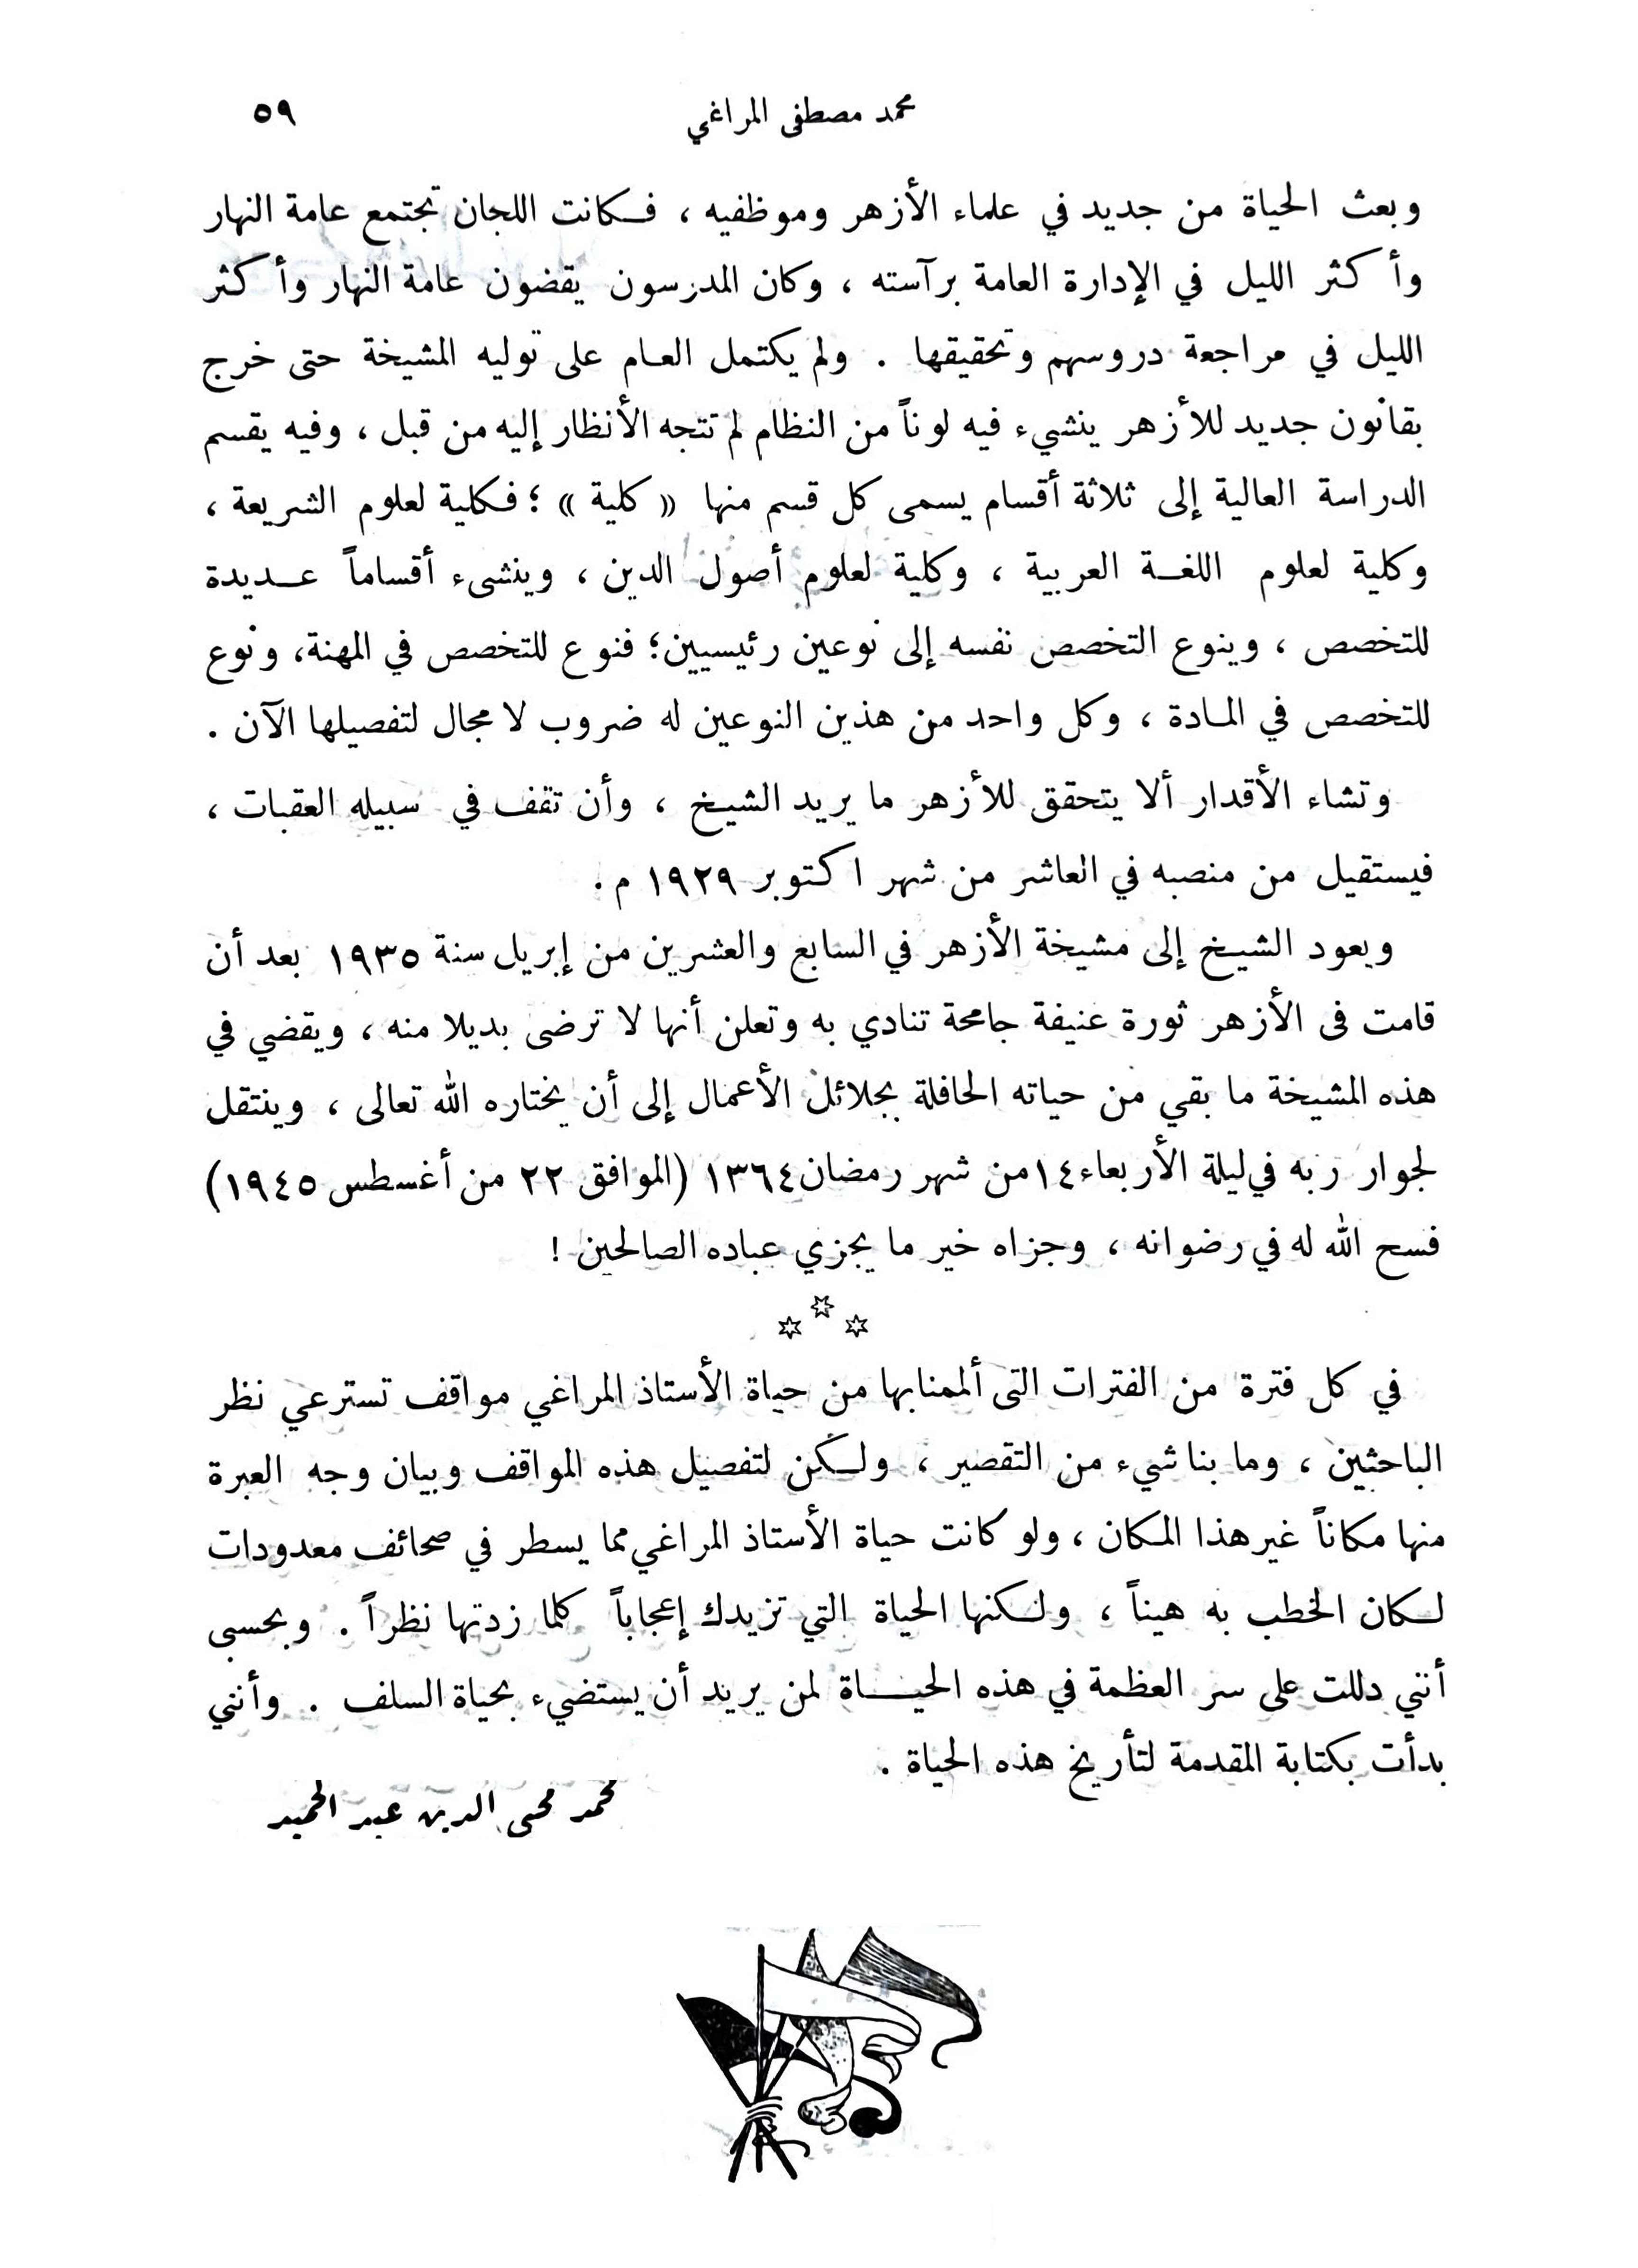 محمد مصطفى المراغي ٥٩
وبعث الحياة من جديد في علماء الأزهر وموظفيه ، فكانت اللجان تجتمع عامة النهار
وأكثر الليل في الإدارة العامة برآسته ، وكان المدرسون يقضون عامة النهار وأكثر
الليل في مراجعة دروسهم وتحقيقها . ولم يكتمل العام على توليه المشيخة حتى خرج
بقانون جديد للأزهر ينشيء فيه لوناً من النظام لم تتجه الأنظار إليه من قبل ، وفيه يقسم
الدراسة العالية إلى ثلاثة أقسام يسمى كل قسم منها « كلية » ؛ فكلية لعلوم الشريعة ،
وكلية لعلوم اللغة العربية ، وكلية لعلوم أصول الدين ، وينشىء أقساماً عديدة
للتخصص ، وينوع التخصص نفسه إلى نوعين رئيسيين؛ فنوع للتخصص في المهنة، ونوع
للتخصص في المادة ، وكل واحد من هذين النوعين له ضروب لا مجال لتفصيلها الآن .
وتشاء الأقدار ألا يتحقق للأزهر ما يريد الشيخ ، وأن تقف في سبيله العقبات ،
فيستقيل من منصبه في العاشر من شهر اكتوبر ١٩٢٩ م .
ويعود الشيخ إلى مشيخة الأزهر في السابع والعشرين من إبريل سنة ١٩٣٥ بعد أن
قامت فى الأزهر ثورة عنيفة جامحة تنادي به وتعلن أنها لا ترضى بديلا منه ، ويقضي في
هذه المشيخة ما بقي من حياته الحافلة بجلائل الأعمال إلى أن يختاره الله تعالى ، وينتقل
لجوار ربه في ليلة الأربعاء ١٤ من شهر رمضان ١٣٦٤ (الموافق ٢٢ من أغسطس ١٩٤٥)
فسح الله له في رضوانه ، وجزاه خير ما يجزي عباده الصالحين !
في كل فترة من الفترات التى ألممنا بها من حياة الأستاذ المراغي مواقف تسترعي نظر
الباحثين ، وما بنا شيء من التقصير ، ولكن لتفصيل هذه المواقف وبيان وجه العبرة
منها مكاناً غير هذا المكان ، ولو كانت حياة الأستاذ المراغي مما يسطر في صحائف معدودات
لكان الخطب به هيناً ، ولكنها الحياة التي تزيدك إعجاباً كلما زدتها نظراً . وبحسبى
أنني دللت على سر العظمة في هذه الحياة لمن يريد أن يستضيء بحياة السلف . وأنني
بدأت بكتابة المقدمة لتأريخ هذه الحياة .
محمد محيى الدين عبد الحميد